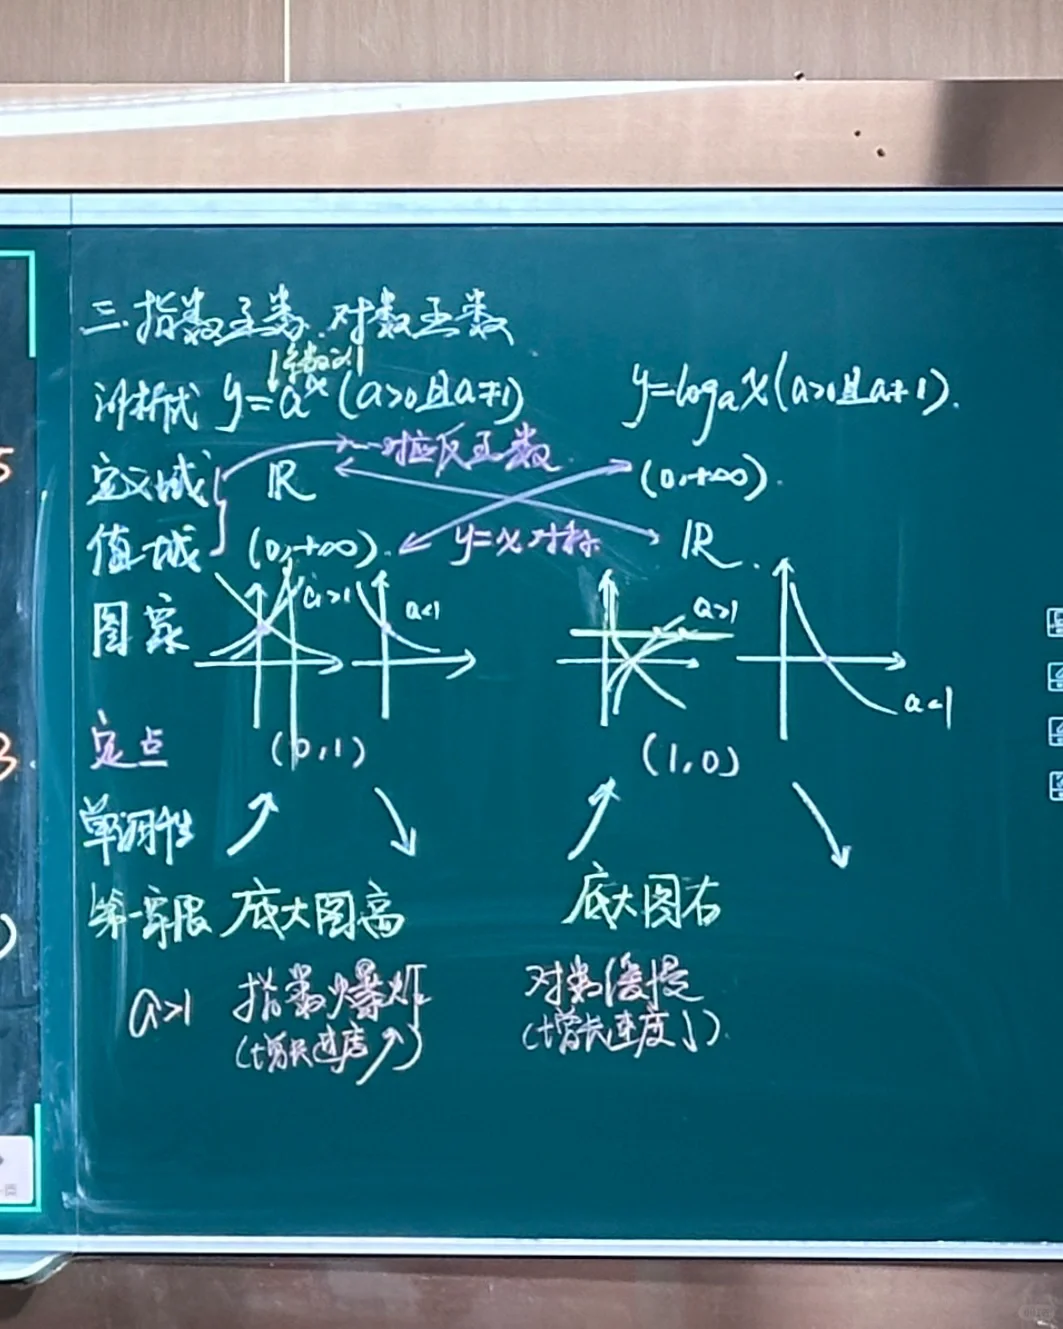 三.指数函数.对数函数
系数为1
解析式 y=aˣ(a>0且a≠1) y=logₐx(a>0且a≠1).
一一对应反函数
定义域 R (0,+∞).
值域 (0,+∞). y=x对称 R.
图象 a>1 a<1 a>1 a<1
定点 (0,1) (1,0)
单调性
第一象限 底大图高 底大图右
a>1 指数爆炸 对数缓慢
(增长速度↗) (增长速度↓).